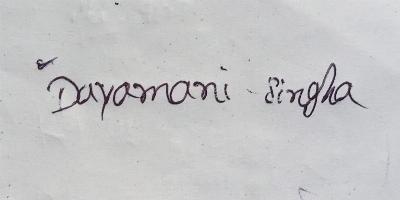 Dayamani Singha